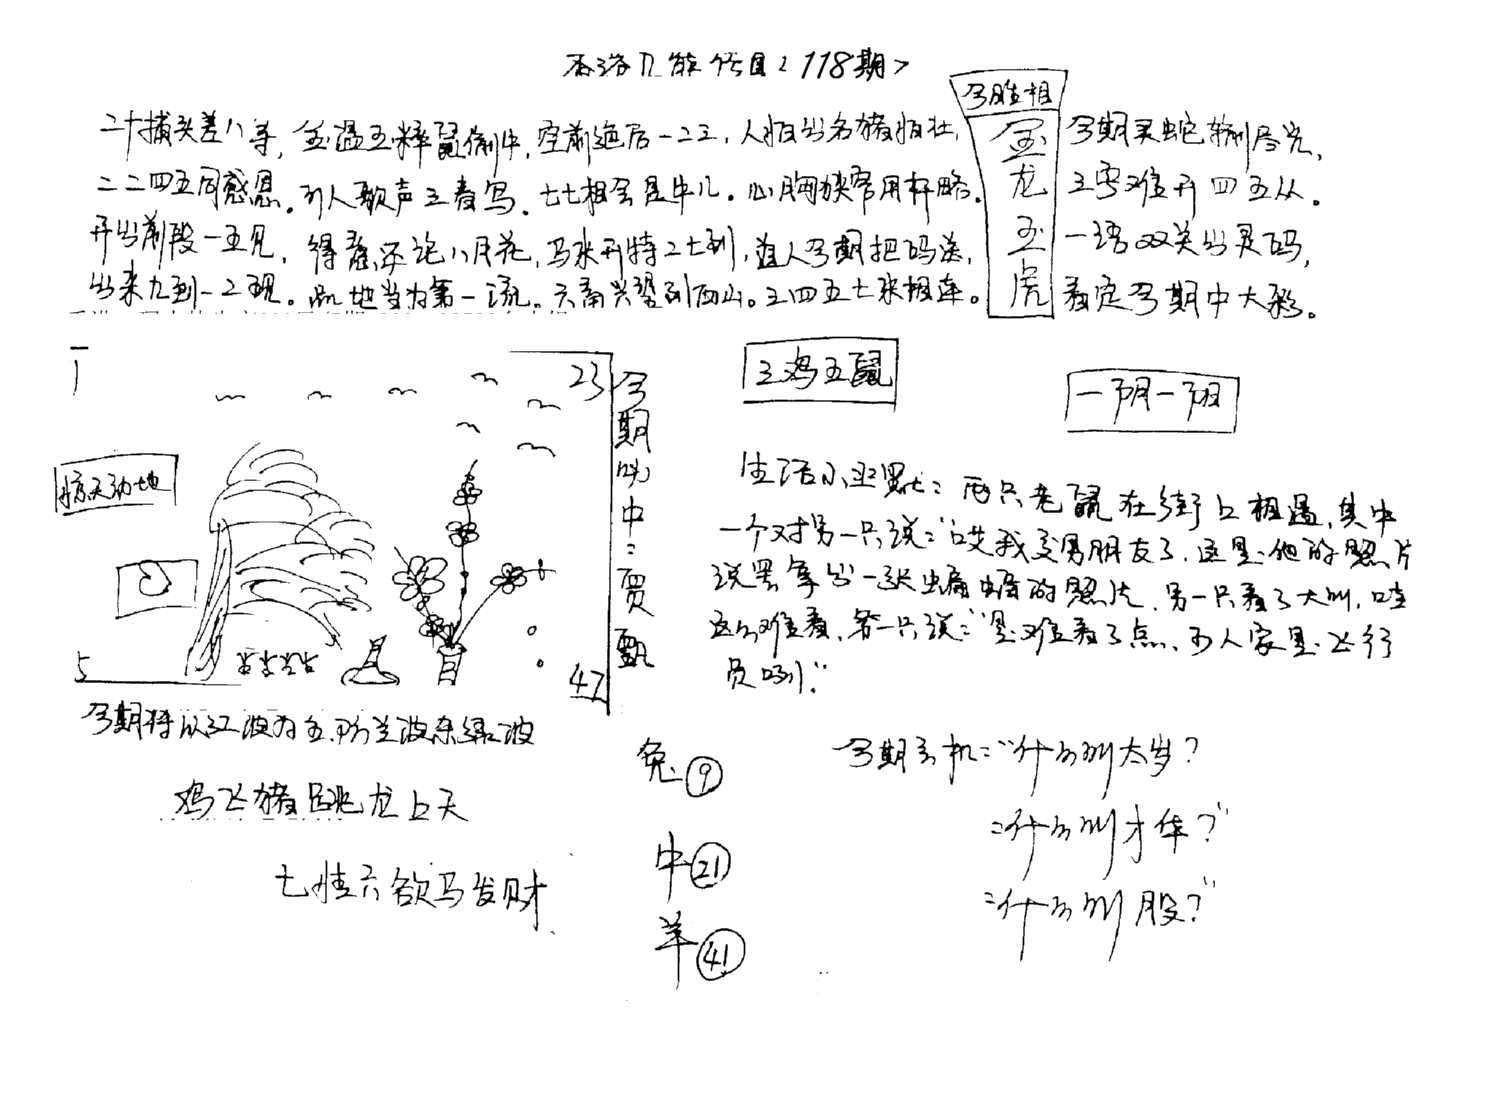 118期
今期生相
金龙玉虎
二十捕头差八等，金温玉粹鼠偷牛，空前绝后一二三，人怕出名猪怕壮，
今期灵蛇制尽光，
二二四五同感恩。引人歌声立春写．七七相会是牛儿。心胸狭窄用杆略。
三零难开四五从。
开出前段一五见，得意还论八月花，马来开特二七到，道人今期把码送，
一语双关出灵码，
出来九到一二现。此地当为第一流．六南兴望到西山。三四五七来相连。
看定今期中大彩。
1
23
惊天动地
5
47
今期必中：贾甄
三鸡五鼠
一阴一阳
生活小幽默：两只老鼠在街上相遇，其中
一个对另一只说：“哎我交男朋友了．这是他的照片
说罢拿出一张蝙蝠的照片．另一只看了大叫，哇
这么难看，第一只说：“是难看了点，可人家是飞行
员哟！”
今期特以红波为主，防兰波杂绿波
鸡飞猪跳龙上天
七情六欲马发财
兔⑨
牛㉑
羊㊶
今期玄机：“什么叫太岁？
：什么叫才华？”
：什么叫股？”